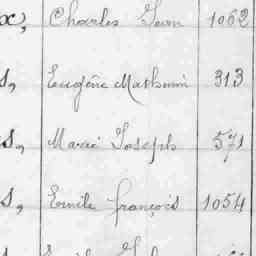 x, Charles Jean 1062
s, Eugène Mathurin 313
s, Marie Joseph 571
s, Emile François 1054